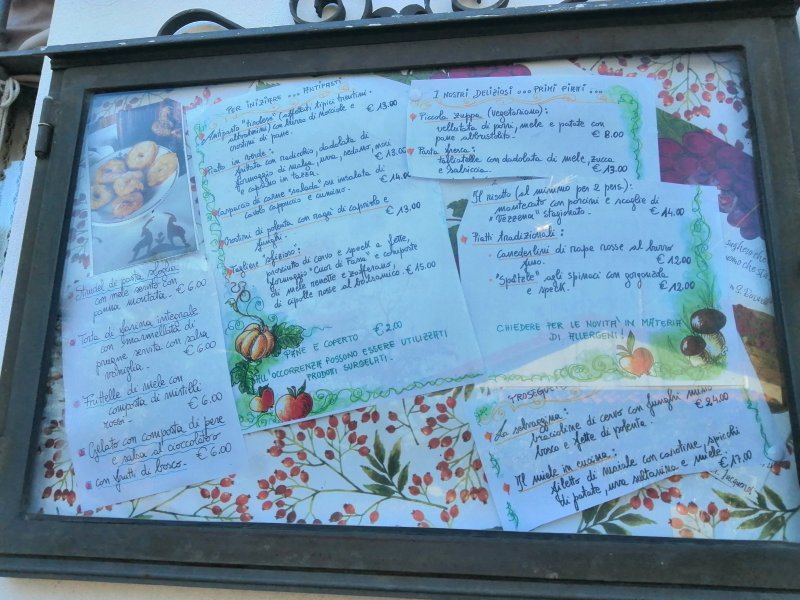 PER INIZIARE ... ANTIPASTI
Antipasto "tirolese" (affettati tipici trentini
abbrustolito) con burro di
crostini di pane. € 13.00
Prato in verde:
frittata con radicchio, dadolata di
formaggio di malga, uva, sedano, noci
e cappuccio in tazza. € 13.00
Carpaccio di carne "salada" su insalata di
cavolo cappuccio e cumino. € 14.00
Crostini di polenta con ragù di capriolo e
funghi. € 13.00
Tagliere "sfizioso":
prosciutto di cervo e speck a fette,
formaggio "Cuor di Fassa" e composte
di mele renette e zafferano,
di cipolle rosse al balsamico. € 15.00
PANE E COPERTO € 2.00
ALL'OCCORRENZA POSSONO ESSERE UTILIZZATI
PRODOTTI SURGELATI.
I NOSTRI DELIZIOSI ... PRIMI PIATTI ...
Piccola zuppa (vegetariana):
vellutata di porri, mele e patate con
pane abbrustolito. € 8.00
Pasta fresca:
tagliatelle con dadolata di mele, zucca
e salsiccia. € 13.00
Il risotto (al minimo per 2 pers):
mantecato con porcini e scaglie di
"Vezzena" stagionato. € 14.00
Piatti tradizionali:
- canederlini di rape rosse al burro
fuso. € 12.00
- "Spätzle" agli spinaci con gorgonzola
e speck. € 12.00
CHIEDERE PER LE NOVITA' IN MATERIA
DI ALLERGENI!
La selvaggina:
bracioline di cervo con funghi misto
bosco e fette di polenta. € 24.00
Il miele in cucina:
filetto di maiale con carotine, spicchi
di patate, uva sultanina e miele. € 17.00
Strudel di pasta sfoglia
con mele servito con
panna montata. € 6.00
Torta di farina integrale
con smarmellata di
prugne servita con salsa
vaniglia. € 6.00
Frittelle di mele con
composta di mirtilli
rossi. € 6.00
Gelato con composta di pere
e salsa al cioccolato
con frutti di bosco. € 6.00